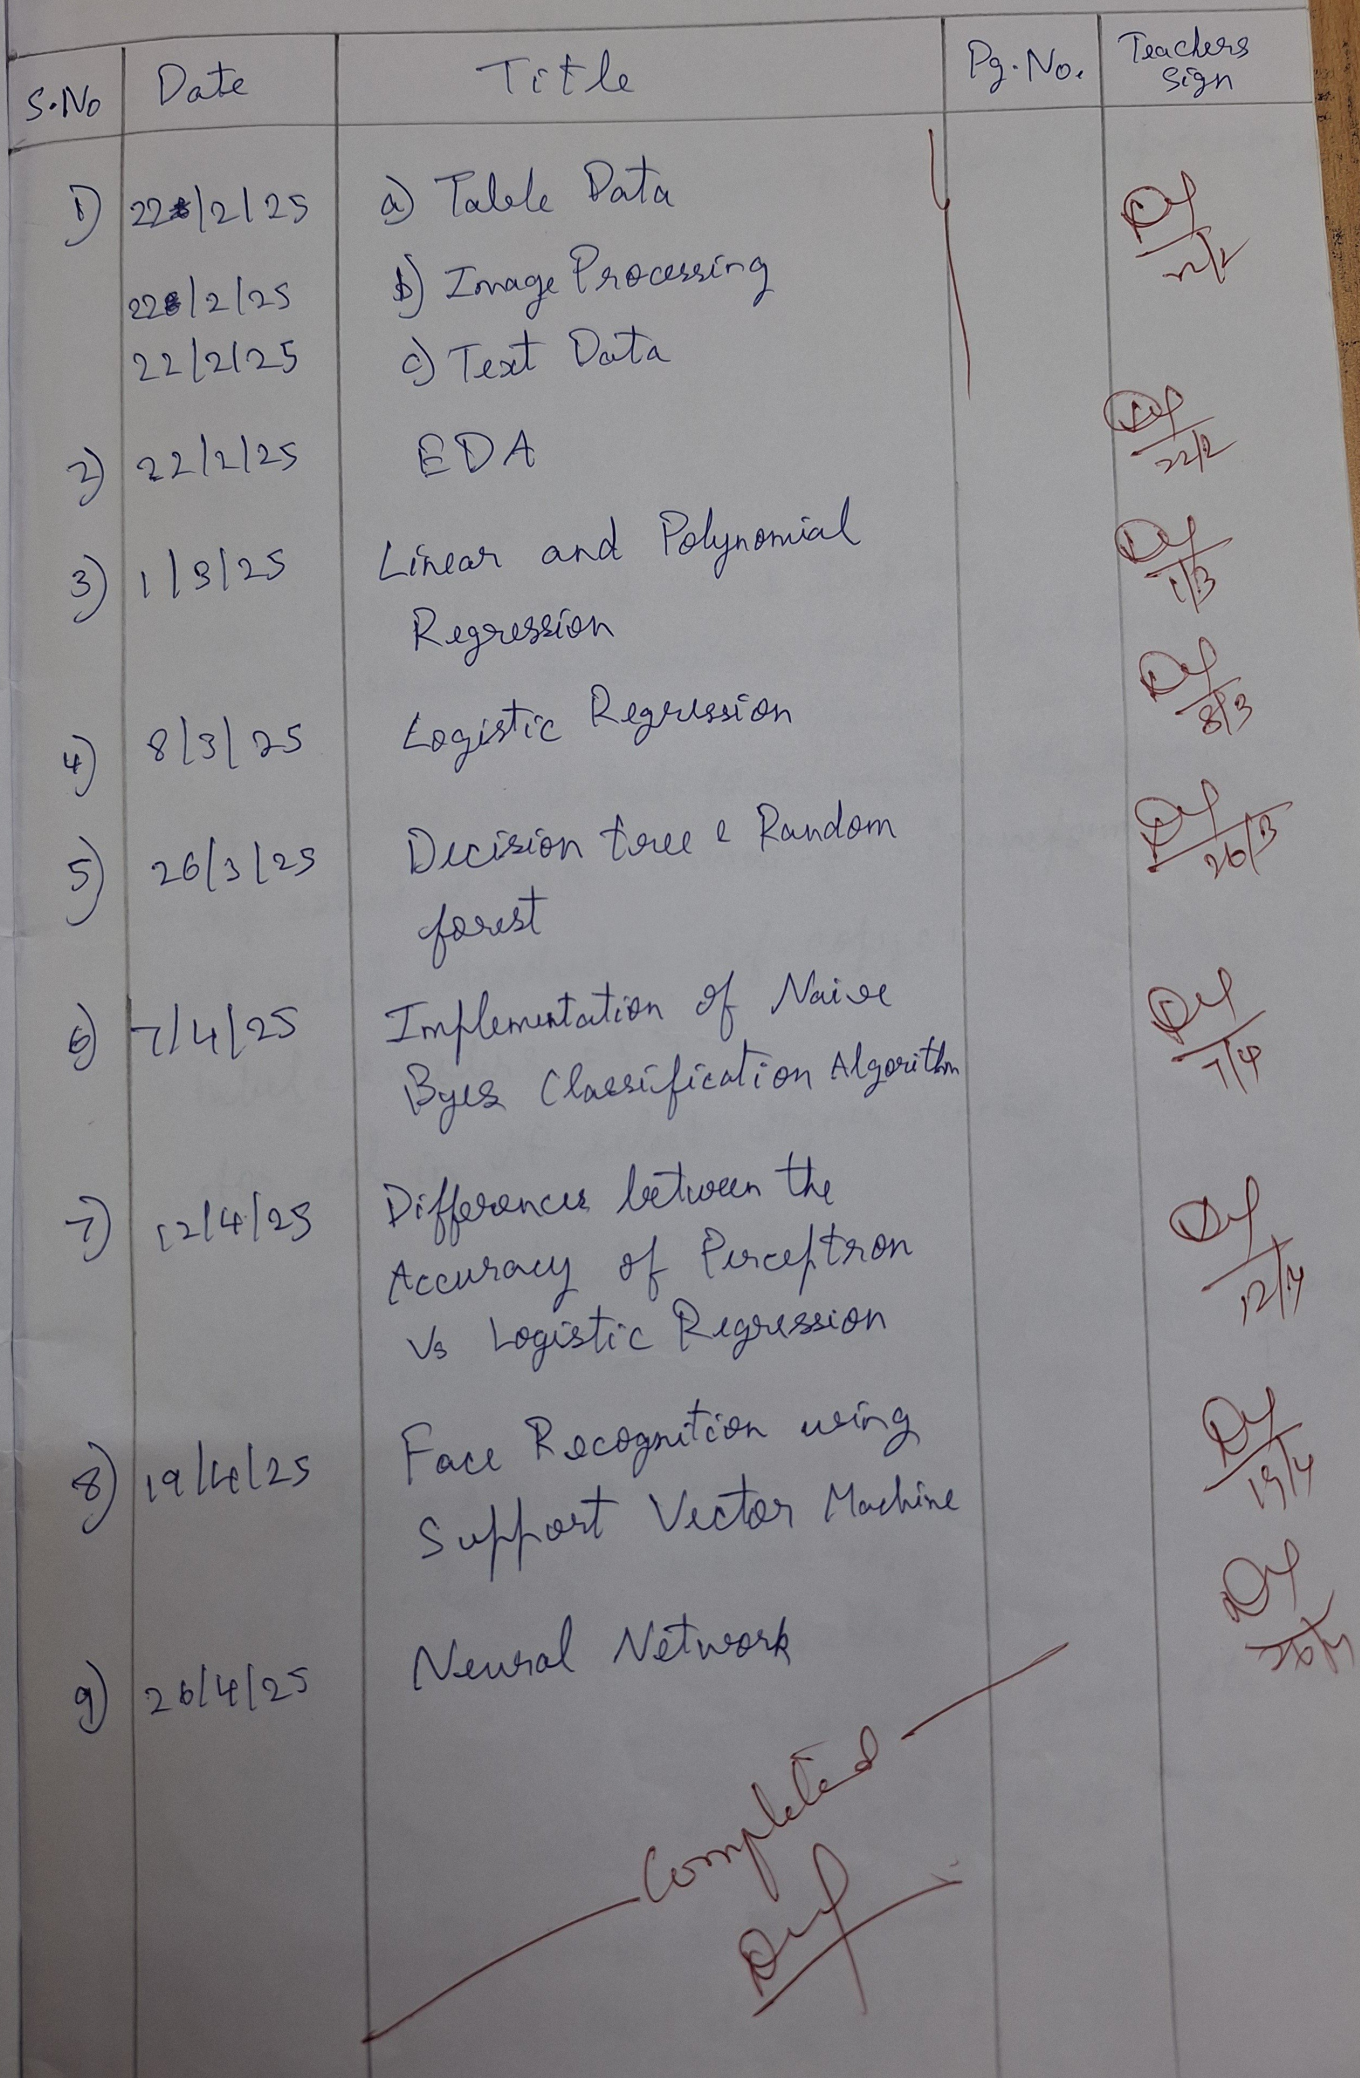 S.No Date Title Pg.No. Teachers Sign
1) 22/2/25 a) Table Data
22/2
22/2/25 b) Image Processing
22/2/25 c) Text Data
2) 22/2/25 EDA
22/2
3) 1/3/25 Linear and Polynomial
1/3
Regression
4) 8/3/25 Logistic Regression
8/3
5) 26/3/25 Decision tree & Random
26/3
forest
6) 7/4/25 Implementation of Naive
7/4
Byes Classification Algorithm
7) 12/4/25 Differences between the
12/4
Accuracy of Perceptron
Vs Logistic Regression
8) 19/4/25 Face Recognition using
19/4
Support Vector Machine
9) 26/4/25 Neural Network
26/4
Completed